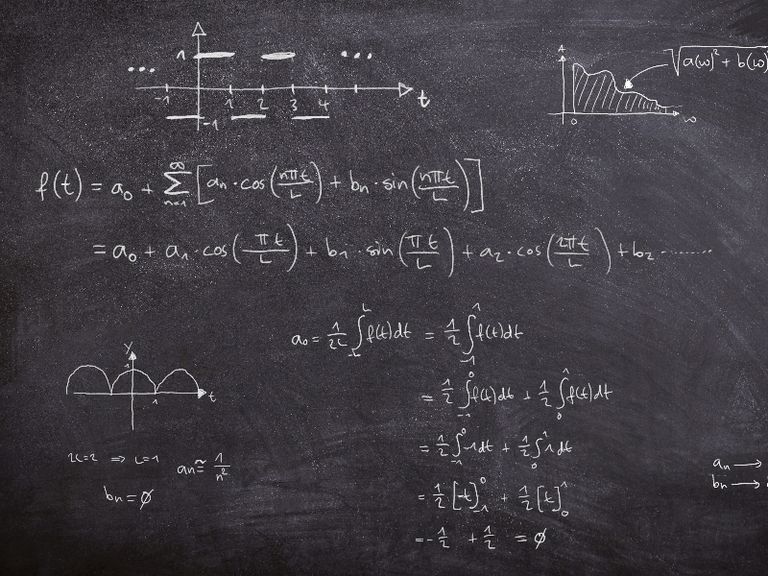 1
-1 1 2 3 4 t
-1
A
√a(ω)² + b(ω)
0 ω
f(t) = a₀ + ∑ₙ₌₁^∞ [aₙ·cos(nπt/L) + bₙ·sin(nπt/L)]
= a₀ + a₁·cos(πt/L) + b₁·sin(πt/L) + a₂·cos(2πt/L) + b₂ ........
a₀ = 1/2L ∫₋L^L f(t)dt = 1/2 ∫₋₁^1 f(t)dt
= 1/2 ∫₋₁^0 f(t)dt + 1/2 ∫₀^1 f(t)dt
= 1/2 ∫₋₁^0 -1dt + 1/2 ∫₀^1 1dt
= 1/2 [-t]₋₁^0 + 1/2 [t]₀^1
= -1/2 + 1/2 = ∅
y
1
1 t
2L=2 ⇒ L=1 aₙ ≅ 1/n²
bₙ = ∅
aₙ →
bₙ →